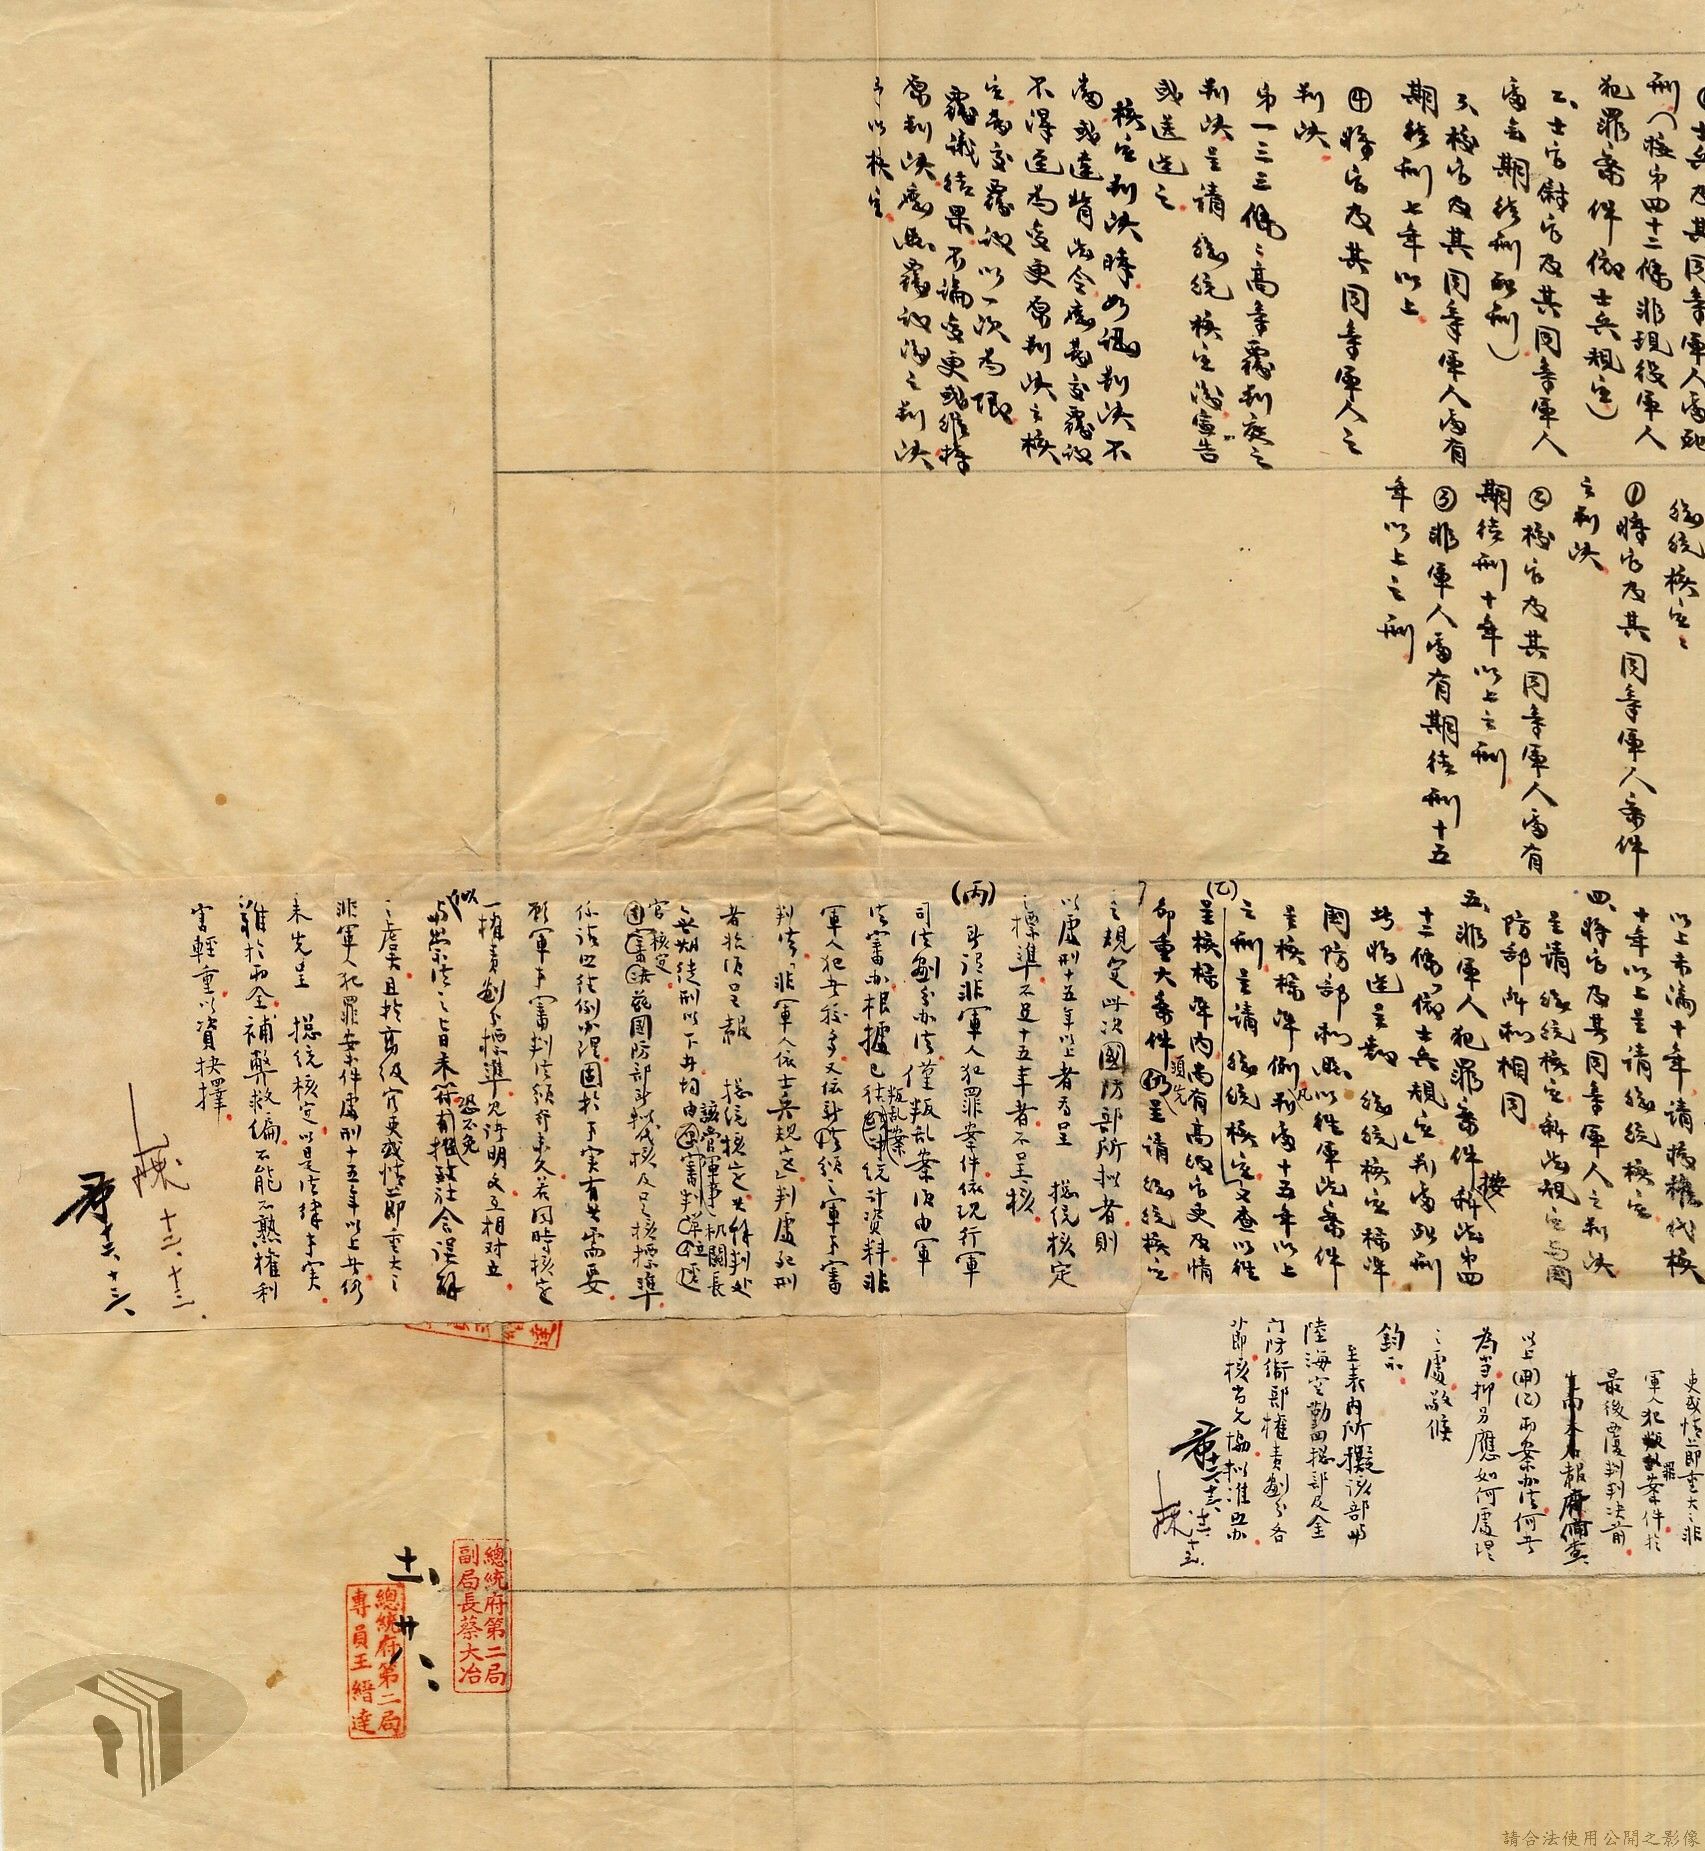 士兵及其同等軍人處死
刑(陸第四十二條非現役軍人
犯罪案件依士兵規定)
2、士官尉官及其同等軍人
處無期徒刑死刑)
3、校官及其同等軍人處有
期徒刑七年以上
④將官及其同等軍人之
判決
第一三三條:高等覆判庭之
判決呈請 總統核定後宣告
或送達之
核定判決時如認判決不
當或違背法令應發交覆議
不得逕為變更原判決之核
定發交覆議以一次為限
覆議結果不論變更或維持
原判決應照覆議後之判決
予以核定
總統核定:
①將官及其同等軍人案件
之判決
②校官及其同等軍人處有
期徒刑十年以上之刑
③非軍人處有期徒刑十五
年以上之刑
以上未滿十年請授權代核
十年以上呈請總統核定
四、將官及其同等軍人之判決
呈請總統核定新法規定與國
防部所擬相同
五、非軍人犯罪案件按新法第四
十二條「依士兵規定」判處死刑
者將送呈 總統核定標準
國防部擬照以往軍法案件
呈核標準例凡判處十五年以上
之刑呈請 總統核定又查以往
(乙)呈核標準內尚有高級官吏及情
節重大案件須先呈請總統核定
之規定此次國防部所擬者則
以處刑十五年以上者為呈 總統核定
之標準不足十五年者不呈核
(丙)非軍人犯罪案件依現行軍
司法劃分辦法僅叛亂案係由軍
法審办根據已往統計資料非
軍人犯者較多又依新頒之軍事審
判法「非軍人依士兵規定」判處死刑
者始須呈報 總統核定其餘判處
無期徒刑以下者均由該管軍事机關長
官核定茲國防部擬代核及呈核標準
係沿照往例办理固於事實有其需要
惟軍事審判法頒行未久若同時核定
一權責劃分標準允許明文互相對立
似與崇法之旨未符恐不免引致社会誤解
之虞且於高級官吏或情節重大之
非軍人犯罪案件處刑十五年以上者仍
未先呈 總統核定以是法律事實
難於兩全補弊救偏不能不熟權利
害輕重以資抉擇
十二、十三
十六、十三
吏或情節重大之非
軍人犯罪案件於
最後覆判判決前
以上(甲)(乙)兩案办法何者
為當抑另應如何處理
之處敬候
鈞示
至表內所擬該部與
陸海空勤四總部及金
門防衛部權責劃分各
節核尚允協擬准照办
十二、十三
十二、廿八
總統府第二局
副局長蔡大冶
總統府第二局
專員王縉達
請合法使用公開之影像